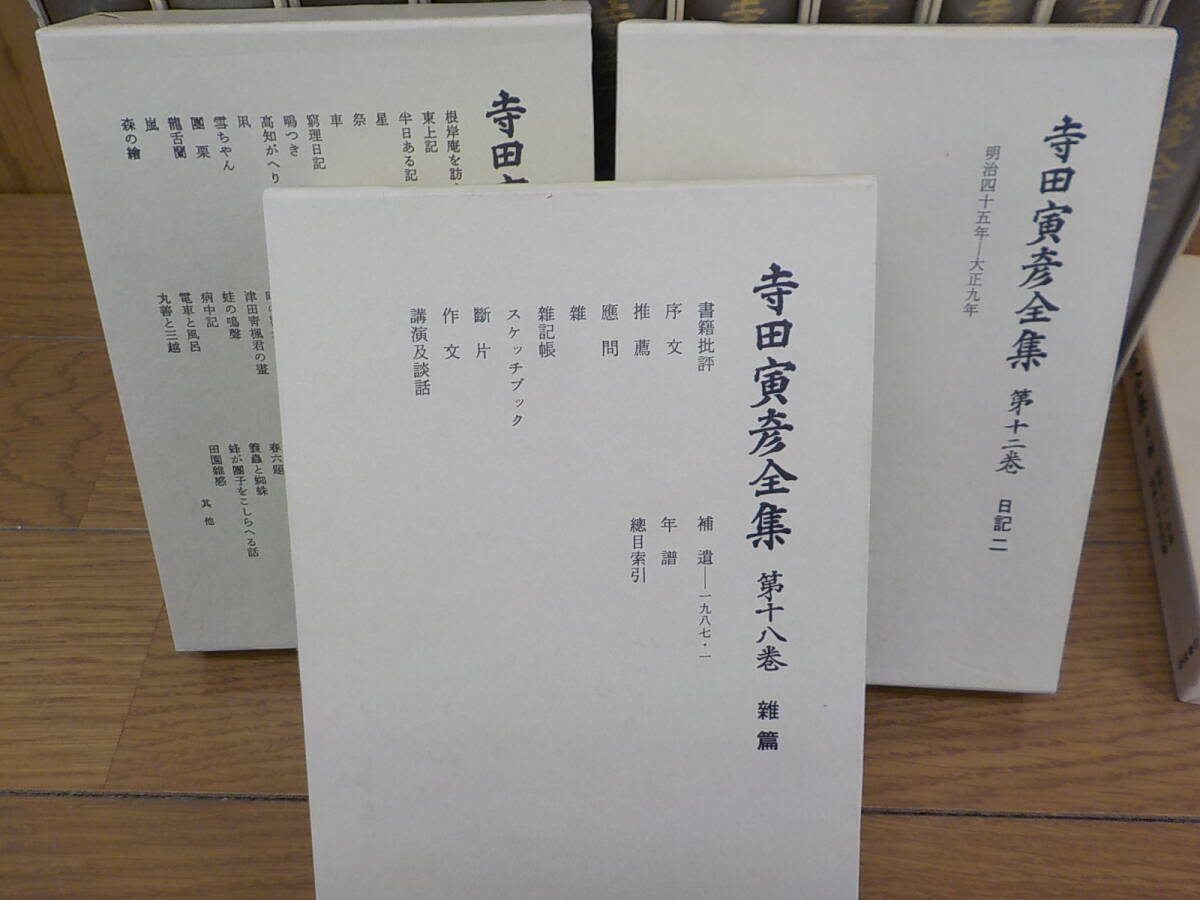 寺田寅彦全集 第十八巻 雜篇
書籍批評
序文
推薦
應問
雜
雜記帳
スケッチブック
斷片
作文
講演及談話
補遺——一九八七・一
年譜
總目索引
寺田寅彦全集 第十二巻 日記二
明治四十五年——大正九年
寺田
根岸庵を訪
東上記
半日ある記
星
祭
車
窮理日記
鴫つき
高知がへり
凩
雪ちやん
團栗
龍舌蘭
嵐
森の繪
津田青楓君の畫
蛙の鳴聲
病中記
電車と風呂
丸善と三越
春六題
簑蟲と蜘蛛
蜂が團子をこしらへる話
田園雜感
其他